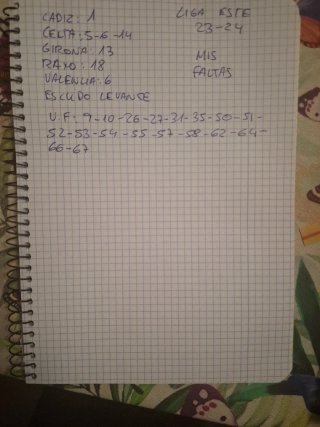 CADIZ: 1
CELTA: 5-6-14
GIRONA: 13
RAYO: 18
VALENCIA: 6
ESCUDO LEVANTE
LIGA ESTE
23-24
MIS
FALTAS
U.F: 9-10-26-27-31-35-50-51-
52-53-54-55-57-58-62-64-
66-67